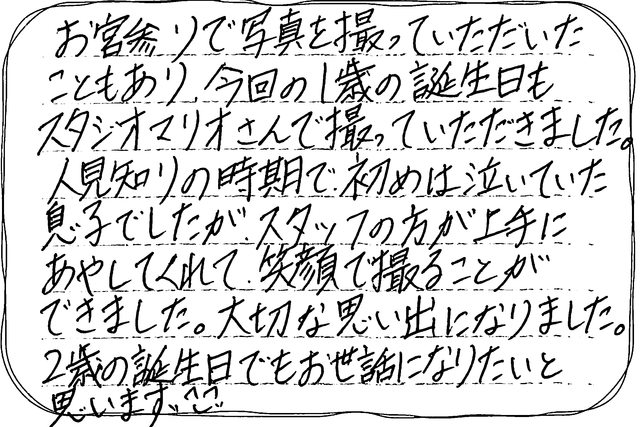 お宮参りで写真を撮っていただいた
こともあり、今回の1歳の誕生日も
スタジオマリオさんで撮っていただきました。
人見知りの時期で、初めは泣いていた
息子でしたが、スタッフの方が上手に
あやしてくれて、笑顔で撮ることが
できました。大切な思い出になりました。
2歳の誕生日でもお世話になりたいと
思います。